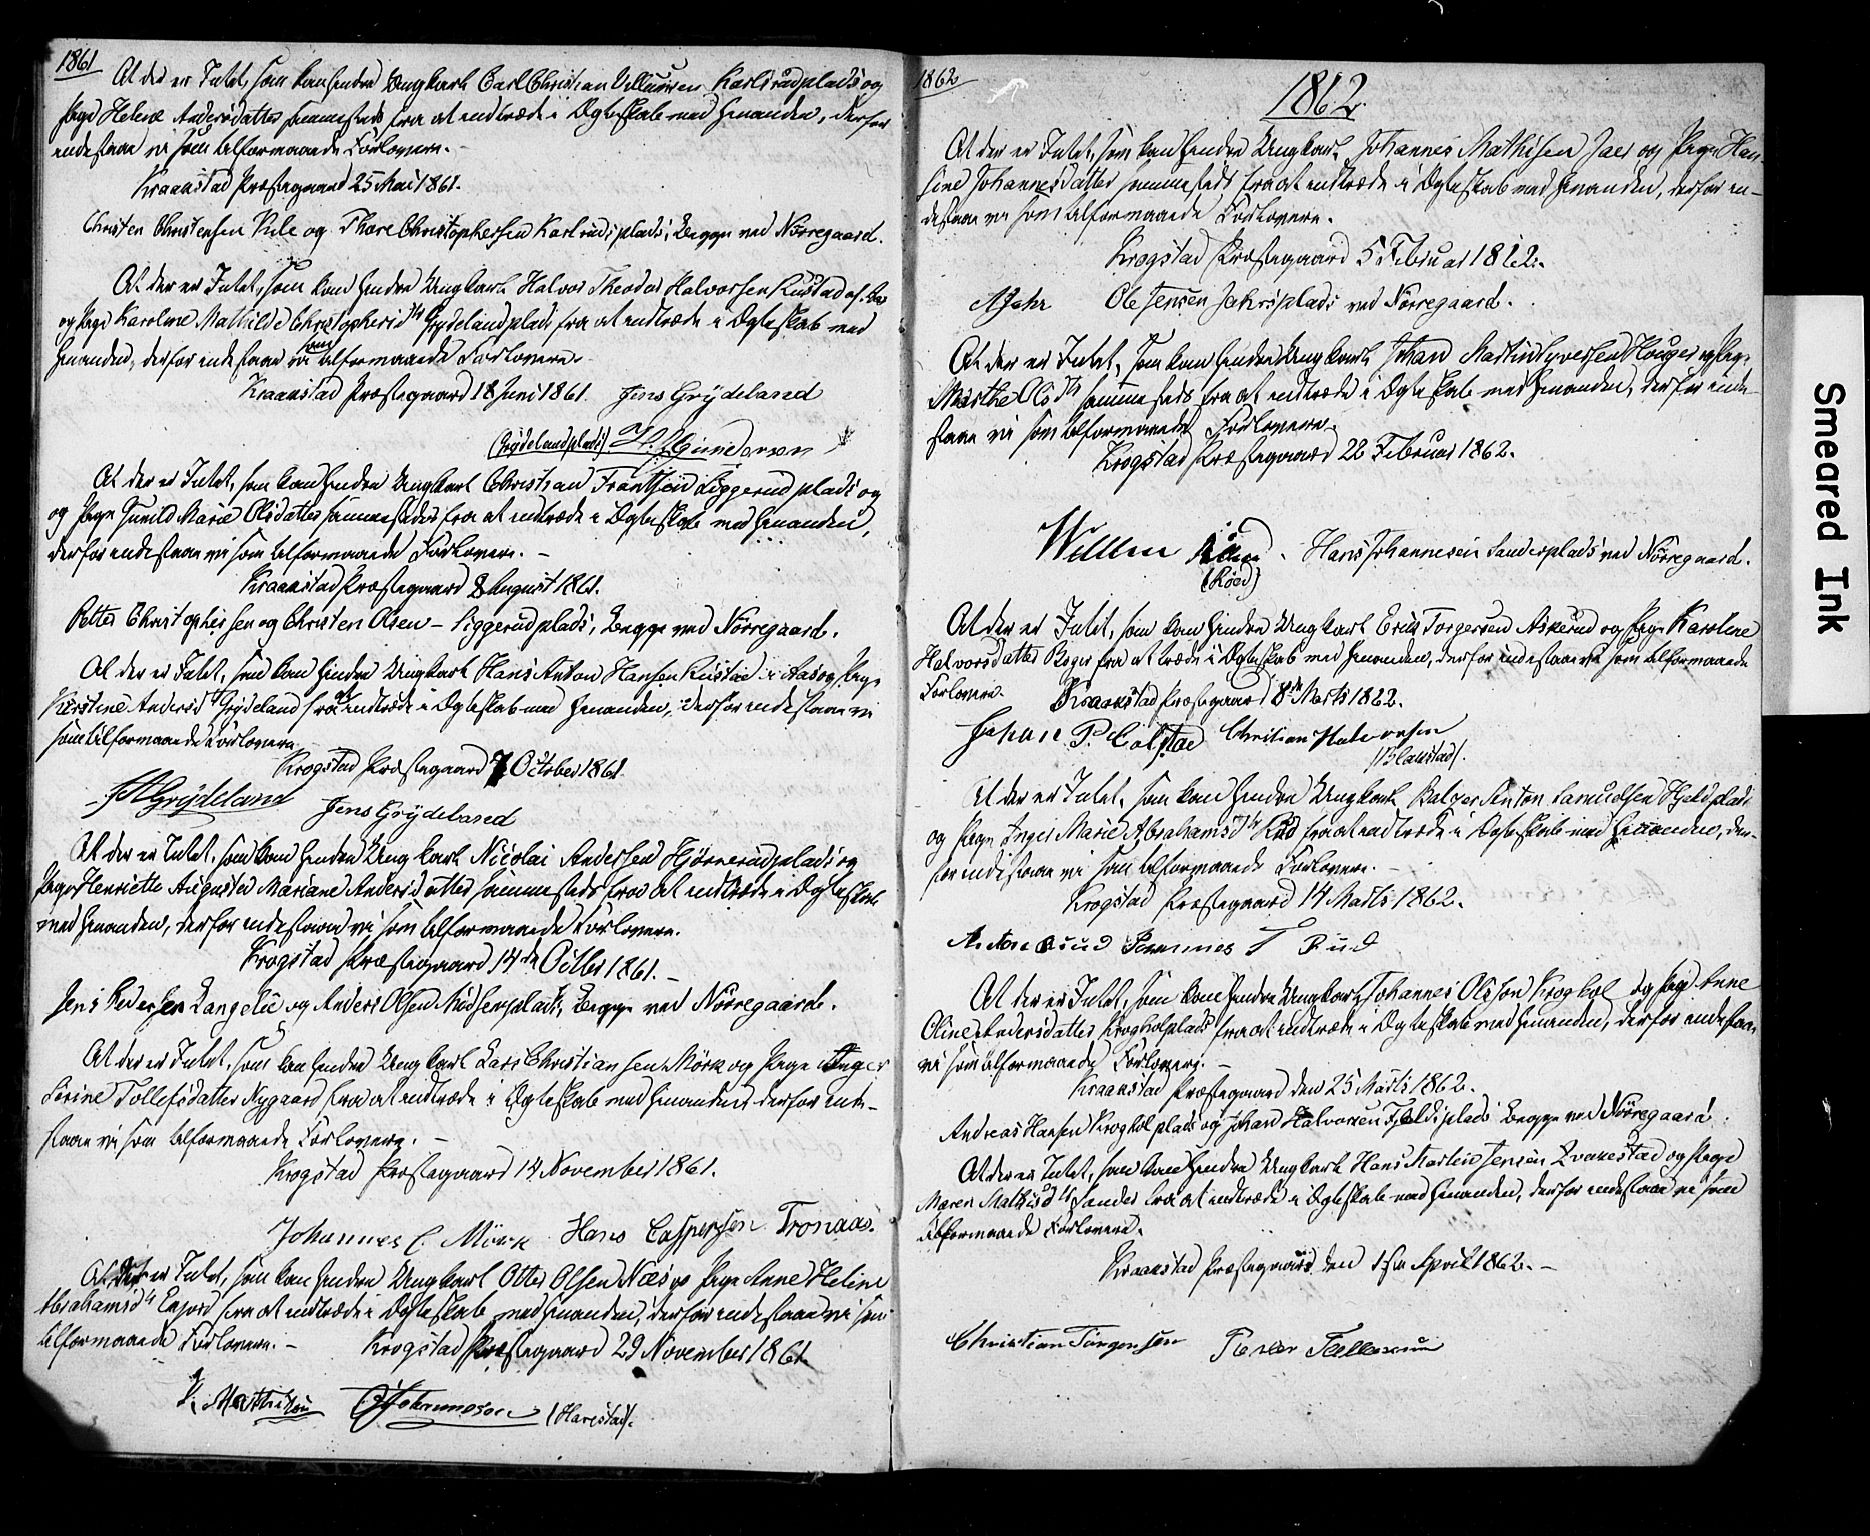 1861
At der er Intet, som kan hindre Ungkarl Carl Christian Villumsen Karlsrudplads og
Pige Helene Andersdatter sammesteds fra at indtræde i Ægteskab med hinanden, derfor
indestaae vi som tilformaaende Forlovere.
Kraakstad Præstegaard 25 Mai 1861.
Christen Christensen Rule og Thore Christophersen Karlsrudsplads, Begge med Nørregaard.
At der er Intet, som kan hindre Ungkarl Halvor Theodor Halvorsen Rustad af Aas
og Pige Karoline Mathilde Christophersd:tr Grydelandplads fra at indtræde i Ægteskab med
hinanden, derfor indestaae vi som tilformaaende Forlovere.
Kraakstad Præstegaard 18 Juni 1861. Jens Grydeland
(Grydelandplads) H. Gundersen
At der er Intet, som kan hindre Ungkarl Christian Frantsen Liggerudplads og
og Pige Gunild Marie Olsdatter sammesteds fra at indtræde i Ægteskab med hinanden,
derfor indestaae vi som tilformaaende Forlovere. –
Kraakstad Præstegaard 8 August 1861.
Petter Christophersen og Christen Olsen – Liggerudplads, Begge med Nørregaard.
At der er Intet, som kan hindre Ungkarl Hans Anton Hansen Rustad i Aas og Pige
Kirstine Andersd:tr Grydeland fra at indtræde i Ægteskab med hinanden, derfor indestaae vi
som tilformaaende Forlovere
Krogstad Præstegaard 7 October 1861.
A Grydeland Jens Grydeland
At der er Intet, som kan hindre Ungkarl Nicolai Andersen Hjørnerudplads og
Pige Henriette Augusta Mariane Andersdatter sammesteds fra at indtræde i Ægteskab
med hinanden, derfor indestaae vi som tilformaaende Forlovere.
Krogstad Præstegaard 14de Octbr 1861. –
Jens Pedersen Langelie og Anders Olsen Midsemplads, Begge med Nørregaard.
At der er Intet, som kan hindre Ungkarl Lars Christiansen Mörk og Pige Inger
Sorine Tollefsdatter Nygaard fra at indtræde i Ægteskab med hinanden derfor inde-
staae vi som tilformaaende Forlovere. –
Krogstad Præstegaard 14 November 1861.
Johannes C. Mörk Hans Caspersen Tronaas.
At der er Intet, som kan hindre Ungkarl Otter Olsen Næs og Pige Anne Heline
Abrahamsd:tr Enjord fra at indtræde i Ægteskab med hinanden, derfor indestaae vi som
tilformaaende Forlovere. – Krogstad Præstegaard 29 November 1861.
Mathisen Johannesen (Harestad).
1862
1862.
At der er Intet, som kan hindre Ungkarl Johannes Mathisen Jaer og Pige Han-
sine Johannesdatter sammesteds fra at indtræde i Ægteskab med hinanden, derfor in-
destaae vi som tilformaaende Forlovere.
Krogstad Præstegaard 5 Februar 1862.
A Jahr Ole Jensen Jahrsplads med Nørregaard.
At der er Intet, som kan hindre Ungkarl Johan Martin Syversen Houger og Pige
Marthe Olsd:tr sammesteds fra at indtræde i Ægteskab med hinanden, derfor inde-
staae vi som tilformaaende Forlovere.
Krogstad Præstegaard 22 Februar 1862.
Hans Johannesen Sanderplads med Nørregaard.
(Röed)
At der er Intet, som kan hindre Ungkarl Erik Torgersen Askerud og Pige Karoline
Halvorsdatter Boger fra at træde i Ægteskab med hinanden, derfor indestaae vi som tilformaaende
Forlovere. Kraakstad Præstegaard 8de Marts 1862.
Johan P. Colstad Christian Halvorsen
(Blakstad).
At der er Intet, som kan hindre Ungkarl Balzer Anton Samuelsen Hjeldplads
og Pige Inger Marie Abrahamsd:tr Rud fra at indtræde i Ægteskab med hinanden, der-
for indestaae vi som tilformaaende Forlovere. –
Krogstad Præstegaard 14 Marts 1862.
Rud
At der er Intet, som kan hindre Ungkarl Johannes Olsson Kroghol og Pige Anne
Oline Andersdatter Krogholplads fra at indtræde i Ægteskab med hinanden, derfor indestaae
vi som tilformaaende Forlovere. –
Kraakstad Præstegaard den 25 Marts 1862.
Andreas Hansen Krogholplads og Johan Halvorsen Fjeldsplads Begge med Nørregaard.
At der er Intet, som kan hindre Ungkarl Hans Martin Jensen Kvakestad og Pige
Maren Mathisd:tr Sander fra at indtræde i Ægteskab med hinanden, derfor indestaae vi som
tilformaaende Forlovere.
Kraakstad Præstegaard den 1ste April 1862. –
Christian Jörgensen Peder
Smeared Ink